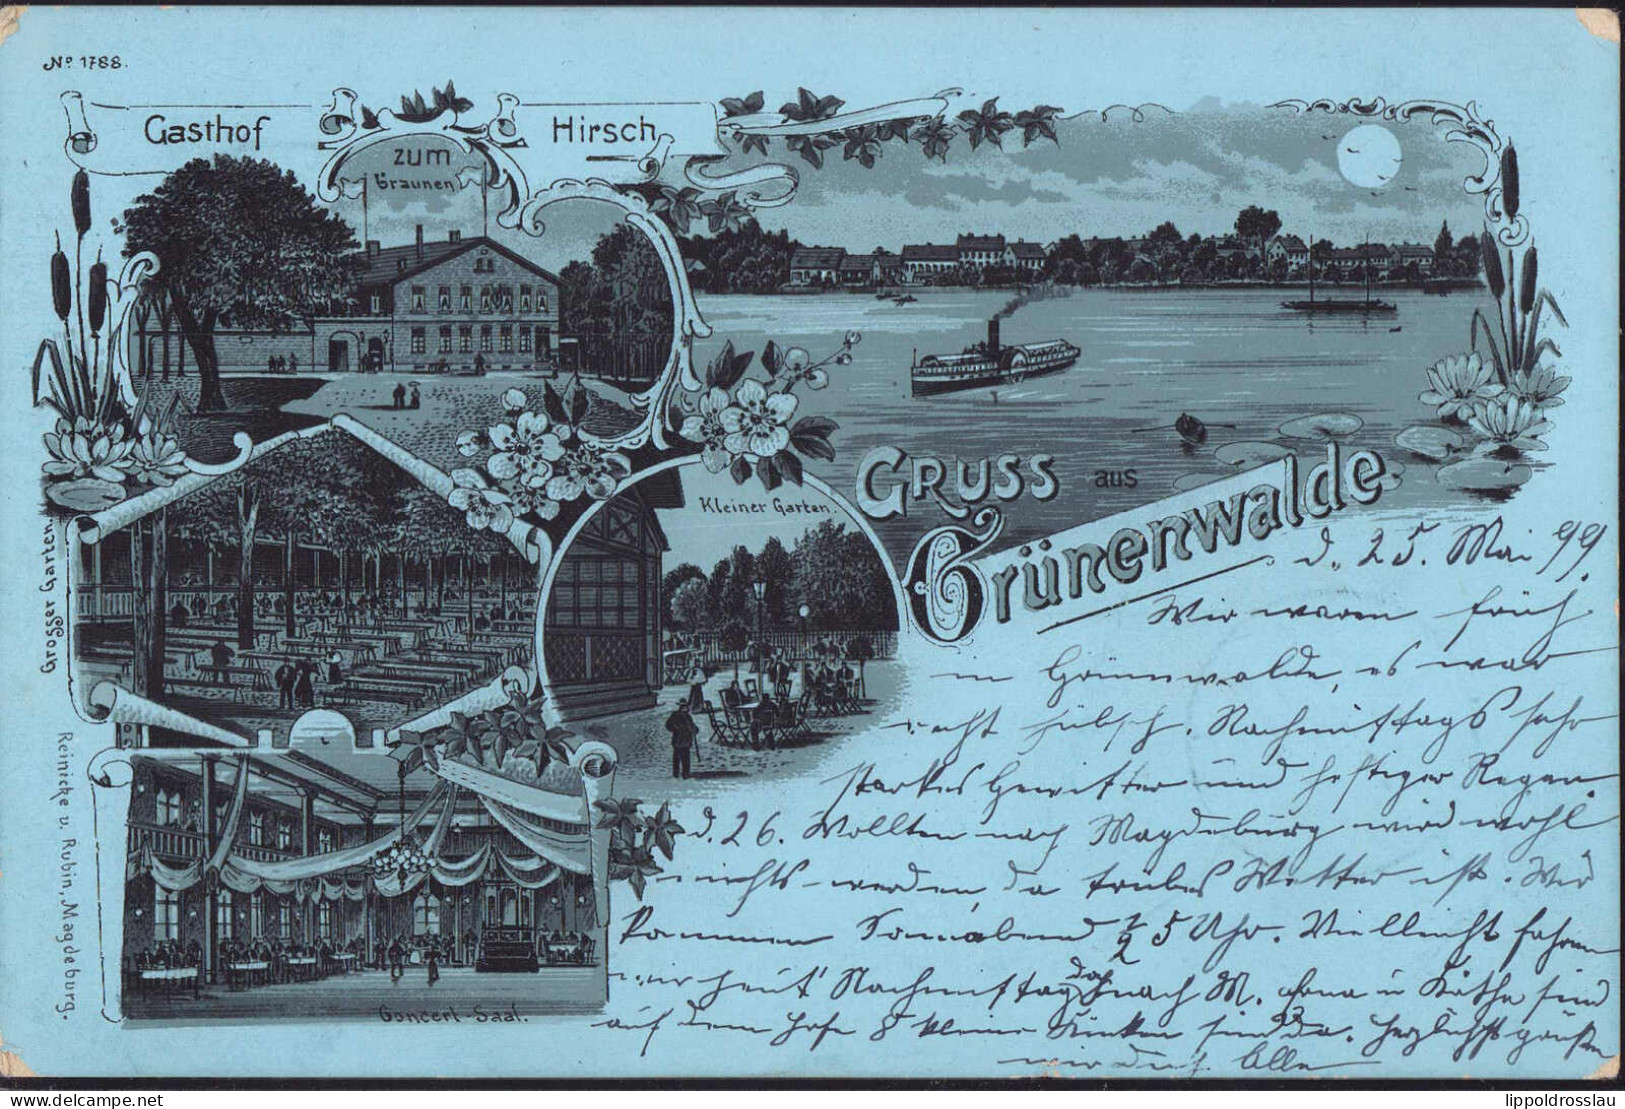 No 1788.
Gasthof
zum
braunen
Hirsch
Gruss aus
Grünenwalde
Kleiner Garten.
Grosser Garten.
Concert-Saal.
Reinicke v. Rubin, Magdeburg.
d. 25. Mai 99.
Wir waren früh
in Grünewalde, es war
recht hübsch. Nachmittags sehr
starkes Gewitter und heftiger Regen.
d. 26. Wollten nach Magdeburg wird wohl
nichts werden, da trübes Wetter ist. Wir
kommen Sonnabend 1/2 5 Uhr. Vielleicht fahren
wir heut' Nachmittag doch nach M. u Käthe sind
auf dem Hofe 8 kleine sind da. Herzlichst grüßen
wir Alle
lippoldrosslau